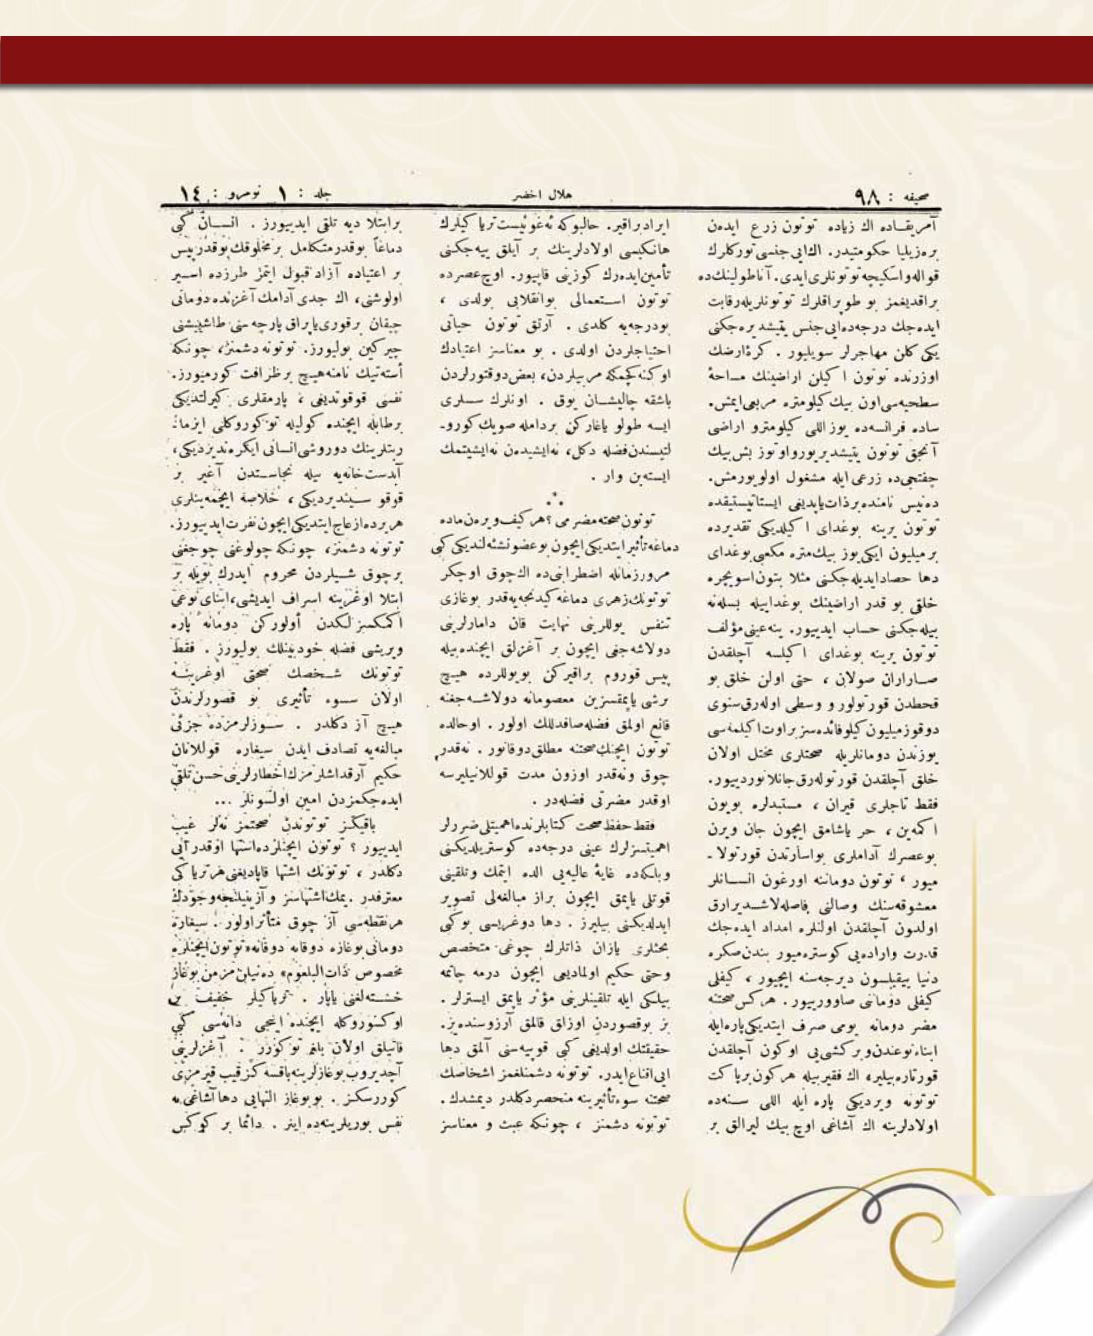 صحيفه : ٩٨
هلال اخضر
جلد : ١ نومرو : ١٤
آمريقاده اك زياده توتون زرع ايدەن
برەزيليا حكومتيدر. اك ايى جنسى توركلرك
قواله واسكيجه توتونلرى ايدى. آناطولينك ده
براقديغمز بو طوپراقلرك توتونلريله رقابت
ايده جك درجه ده ايى جنس يتيشديره جكنى
يكى كلن مهاجرلر سويليور . كرۀ ارضك
اوزرنده توتون اكيلن اراضينك مساحۀ
سطحيه سى اون بيك كيلومتره مربعى ايمش.
ساده فرانسه ده يوز اللى كيلومترو اراضى
آنجق توتون يتيشديريور و اوتوز بش بيك
چفتجى ده زرعى ايله مشغول اولويورمش.
دەنيس نامنده بر ذات يابديغى ايستاتيستيقده
توتون يرينه بوغداى اكيلديكى تقديرده
بر ميليون ايكى يوز بيك متره مكعبى بوغداى
دها حصاد ايديله جكنى مثلا بتون اسويچره
خلقى بو قدر اراضينك بوغداييله بسله نه
بيله جكنى حساب ايدييور. ينه عينى مؤلف
توتون يرينه بوغداى اكيلسه آچلقدن
صاراران صولان ، حتى اولن خلق بو
قحطدن قورتولور و وسطى اوله رق سنوى
دوقوز ميليون كيلو فائده سز بر اوت اكيلمه سى
يوزندن دومانلريله صحتلرى مختل اولان
خلق آچلقدن قورتوله رق جانلانورديبور.
فقط تاجلرى قيران ، مستبدلره بويون
اكمەين ، حر ياشامق ايچون جان ويرن
بو عصرك آداملرى بو اسارتدن قورتولا ـ
ميور ، توتون دوماننه اورغون انسانلر
معشوقه سنك وصالنى فاصله لاشديرارق
اولدون آچلقدن اولنلره امداد ايده جك
قدرت و اراده يى كوستره ميور بندن صكره
دنيا ييقيلسون ديرجه سنه ايچيور ، كيفلى
كيفلى دوماننى صاوورييور . هركس صحتنه
مضر دومانه يومى صرف ايتديكى پاره ايله
ابناء نوعندن و بر كشى يى او كون آچلقدن
قورتاره بيلير، اك فقير بيله هر كون برپاكت
توتونه ويرديكى پاره ايله اللى سنه ده
اولادلرينه اك آشاغى اوچ بيك ليرالق بر
ايراد براقير. حالبوكه ئه غوئيست ترياكيلرك
هانكيسى اولادلرينك بر آيلق ييه جكنى
تأمين ايده رك كوزينى قاپيور. اوچ عصرده
توتون استعمالى بو انقلابى بولدى ،
بو درجه يه كلدى . آرتق توتون حياتى
احتياجلردن اولدى . بو معناسز اعتيادك
اوكنه كچمكه مربيلردن، بعض دوقتورلردن
باشقه چاليشان يوق . اونلرك سسلرى
ايسه طولو ياغاركن بردامله صويك كورو-
لتيسندن فضله دكل، نه ايشيدن نه ايشيتمك
ايسته ين وار .
⁂
توتون صحته مضرمى؟ هر كيف ويرەن ماده
دماغه تأثير ايتديكى ايچون بو عضو نشئه لنديكى كبى
مرور زمانله اضطرابنى ده اك چوق او چكر
توتونك زهرى دماغه كيدنجه يه قدر بوغازى
تنفس يوللرينى نهايت قان دامارلرينى
دولاشه جغى ايچون بر آغزلق ايچنده بيله
پيس قوروم براقيركن بو يوللرده هيچ
بر شى ياپمقسزين معصومانه دولاشه جغنه
قانع اولمق فضله صافدللك اولور . او حالده
توتون ايچنك صحتنه مطلق دوقانور . نه قدر
چوق و نه قدر اوزون مدت قوللانيليرسه
او قدر مضرتى فضله در .
فقط حفظ صحت كتابلرنده اهميتلى ضررلر
اهميتسزلرك عينى درجه ده كوستريلديكنى
وبلكه ده غايۀ عاليه يى الده ايتمك وتلقينى
قوتلى ياپمق ايچون براز مبالغه لى تصوير
ايدلديكنى بيليرز . دها دوغريسى بو كى
بحثلرى يازان ذاتلرك چوغى متخصص
وحتى حكيم اولماديغى ايچون درمه چاتمه
بيلكى ايله تلقينلرينى مؤثر ياپمق ايسترلر .
بز بو قصوردن اوزاق قالمق آرزوسنده يز.
حقيقتك اولديغى كبى قوپيه سنى آلمق دها
ايى اقناع ايدر. توتونه دشمنلغمز اشخاصك
صحتنه سوء تأثيرينه منحصر دكلدر ديمشدك .
توتونه دشمنز ، چونكه عبث و معناسز
بر ابتلا ديه تلقى ايدييورز . انسان كبى
دماغاً بو قدر متكامل بر مخلوقك بو قدر پيس
بر اعتياده آزاد قبول ايتمز طرزده اسير
اولوشنى، اك جدى آدامك آغزنده دومانى
چيقان بر قورى ياپراق پارچه سنى طاشييشنى
چيركين بوليورز. توتونه دشمنز، چونكه
أسته تيك نامنه هيچ بر ظرافت كورميورز.
نفسى قوقوتديغى ، پارمقلرى كيرلتديكى
بر طابله ايچنده كوليله توكوروكلى ايزما-
ريتلرينك دوروشى انسانى ايكره نديرديكى،
آبدستخانه يه بيله نجاستدن آغير بر
قوقو سينديرديكى ، خلاصه ايچمه ينلرى
هر يرده ازعاج ايتديكى ايچون نفرت ايدييورز.
توتونه دشمنز، چونكه چولوغنى چوجغنى
بر چوق شيلردن محروم ايدرك بويله بر
ابتلا اوغرينه اسراف ايديشى، ابناى نوعى
اكمكسزلكدن أولوركن دومانه پاره
ويريشى فضله خودبينلك بوليورز . فقط
توتونك شخصك صحتى اوغرينه
اولان سوء تأثيرى بو قصورلرندن
هيچ آز دكلدر . سوزلرمزده جزئى
مبالغه يه تصادف ايدن سيغاره قوللانان
حكيم آرقداشلرمزك اخطارلرينى حسن تلقى
ايده جكمزدن امين اولسونلر ...
باقيكز توتوندن صحتمز نه لر غيب
ايدييور ؟ توتون ايچنلرده اشتها او قدر آيى
دكلدر ، توتونك اشتها قاپاديغنى هر ترياكى
معترفدر. يمك اشتهاسز و آز ينيلنجه وجودك
هر نقطه سى آز چوق متأثر اولور . سيغاره
دومانى بوغازه دوقانه دوقانه «توتون ايچنلره
مخصوص ذات البلعوم» ده نيلن مزمن بوغاز
خسته لغنى ياپار . ترياكيلر خفيف بر
اوكسوروكله ايچنده اينجى دانه سى كبى
قاتيلق اولان بلغم توكورر . آغزلرينى
آچديروب بوغازلرينه باقسه كز قيپ قيرمزى
كوررسكز . بو بوغاز التهابى دها آشاغى يه
نفس بوريلرينه ده اينر . دائما بر كوكس